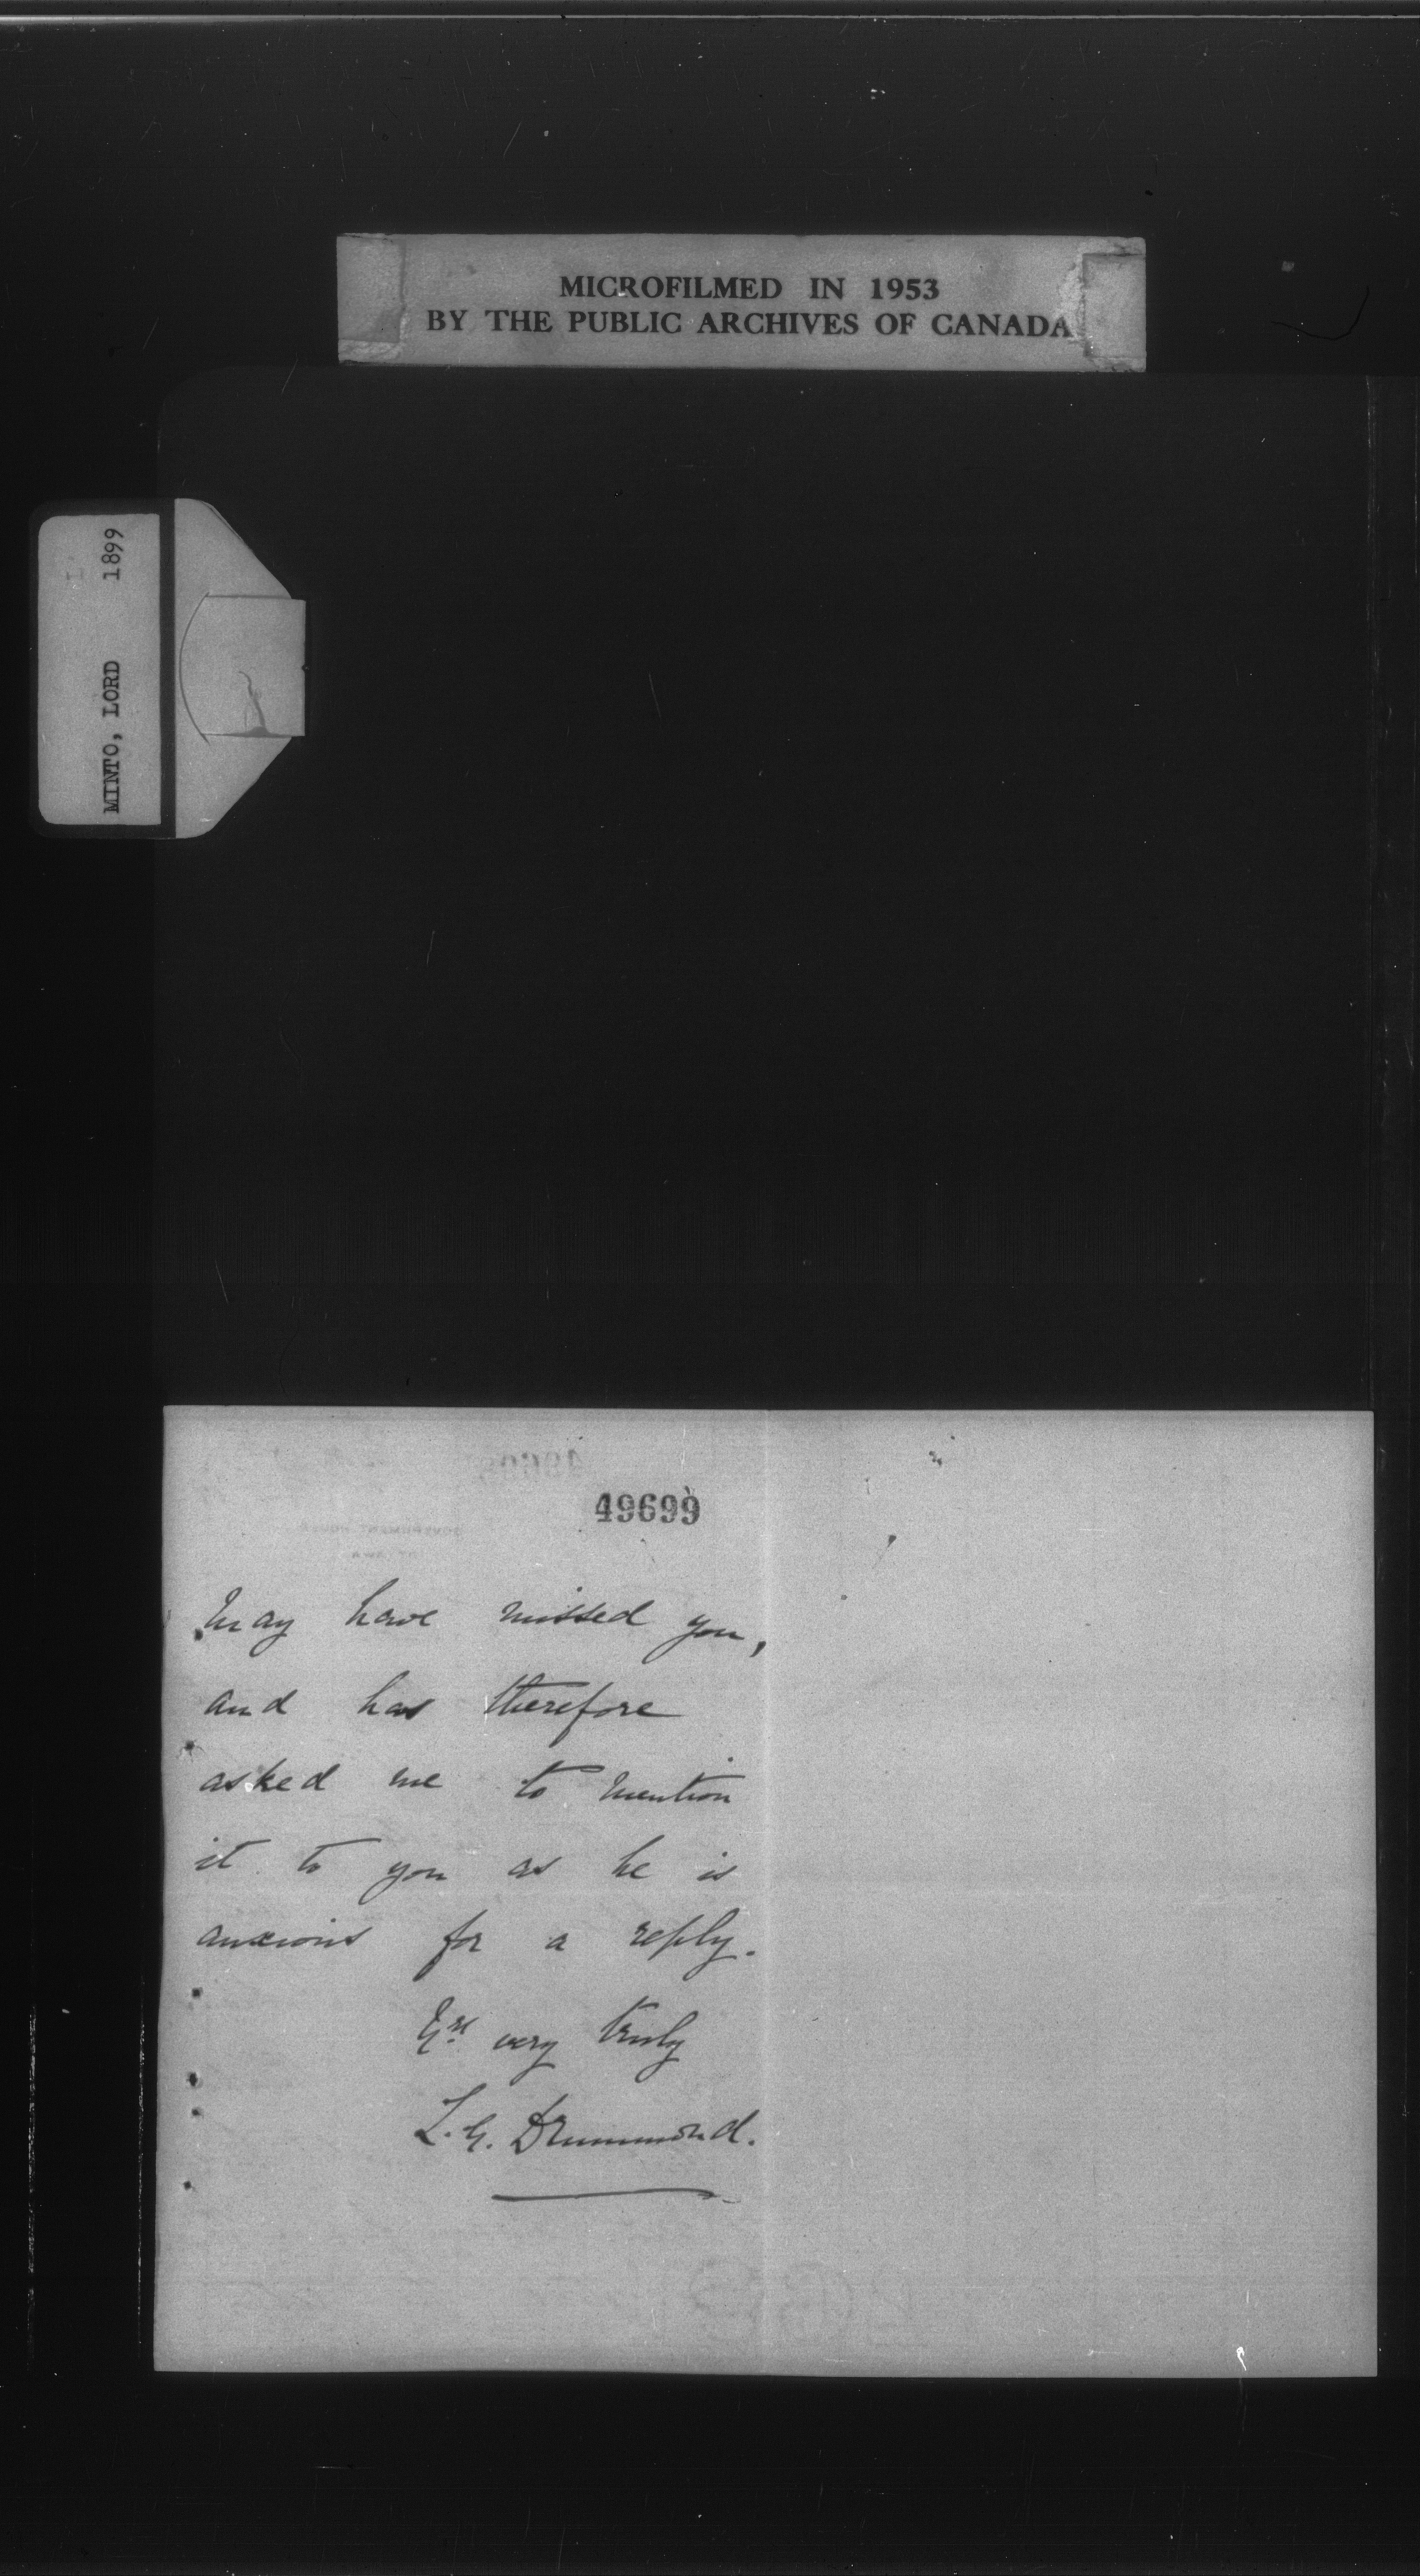 MICROFILMED IN 1953
BY THE PUBLIC ARCHIVES OF CANADA
MINTO, LORD 1899
49699
may have missed you,
and has therefore
asked me to mention
it to you as he is
anxious for a reply.
Yrs very truly
L. G. Drummond.